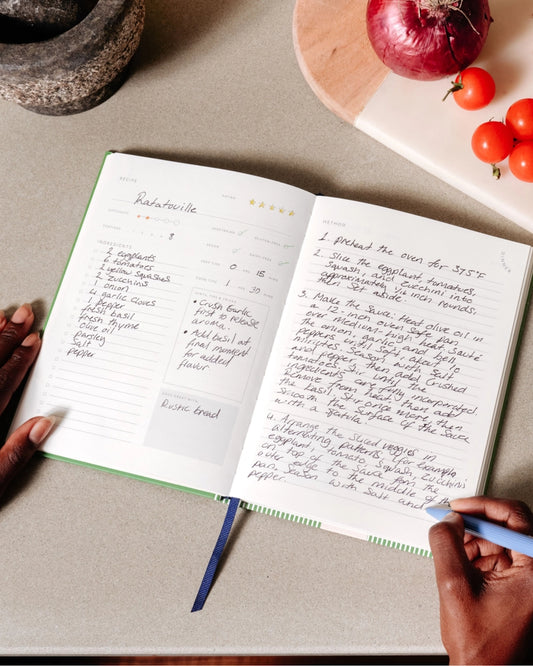 RECIPE
Ratatouille
RATING
DIFFICULTY
VEGETARIAN
GLUTEN-FREE
PORTIONS
8
VEGAN
PREP TIME 0 HRS 15 MINS
COOK TIME 1 HRS 30 MINS
INGREDIENTS
2 eggplants
6 tomatoes
2 yellow squashes
2 zucchinis
1 onion
4 garlic cloves
1 pepper
fresh basil
fresh thyme
olive oil
parsley
salt
pepper
• Crush Garlic
first to release
aroma.
• Add basil at
final moment
for added
flavor
GOES GREAT WITH
Rustic bread
METHOD
DINNER
1. preheat the oven for 375°F
2. Slice the eggplant, tomatoes,
Squash, and zucchini into
approximately 1/16 inch rounds,
then set aside.
3. Make the Sauce: Heat olive oil in
a 12-inch oven safe pan
over medium-high heat. Sauté
the onion, garlic, and bell
peppers until soft, about 10
minutes. Season with salt
and pepper, then add crushed
tomatoes. Stir until the
ingredients are fully incorporated.
Remove from heat, then add
the basil. Stir once more, then
smooth the surface of the sauce
with a spatula.
4. Arrange the sliced veggies in
alternating patterns (for example
eggplant, tomato, squash, zucchini
on top of the sauce from the
outer edge to the middle of the
pan. Season with salt and
pepper.